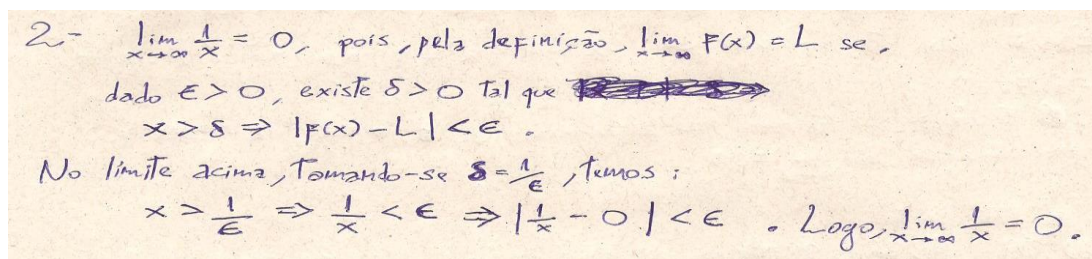 2- lim x→∞ 1/x = 0, pois, pela definição, lim x→∞ F(x) = L se,
dado ε > 0, existe δ > 0 tal que
x > δ ⇒ |F(x) - L| < ε .
No limite acima, Tomando-se δ = 1/ε , temos :
x > 1/ε ⇒ 1/x < ε ⇒ |1/x - 0| < ε . Logo, lim x→∞ 1/x = 0.